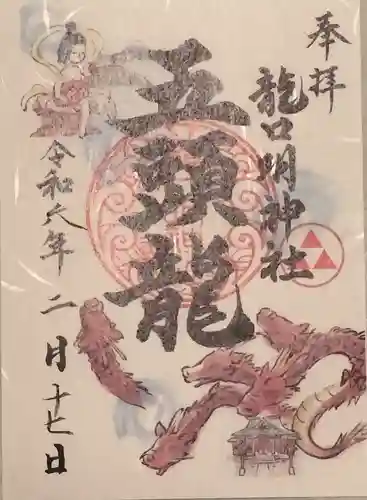 奉拝
龍口明神社
五頭龍
令和六年二月十七日